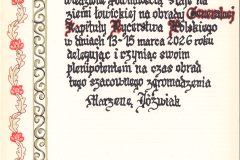 ziemi łowickiej na obrady Generalnej
Kapituły Rycerstwa Polskiego
w dniach 13-15 marca 2026 roku
delegując i czyniąc swoim
plenipotentem na czas obrad
tego szacownego zgromadzenia
Marzenę Jóźwiak